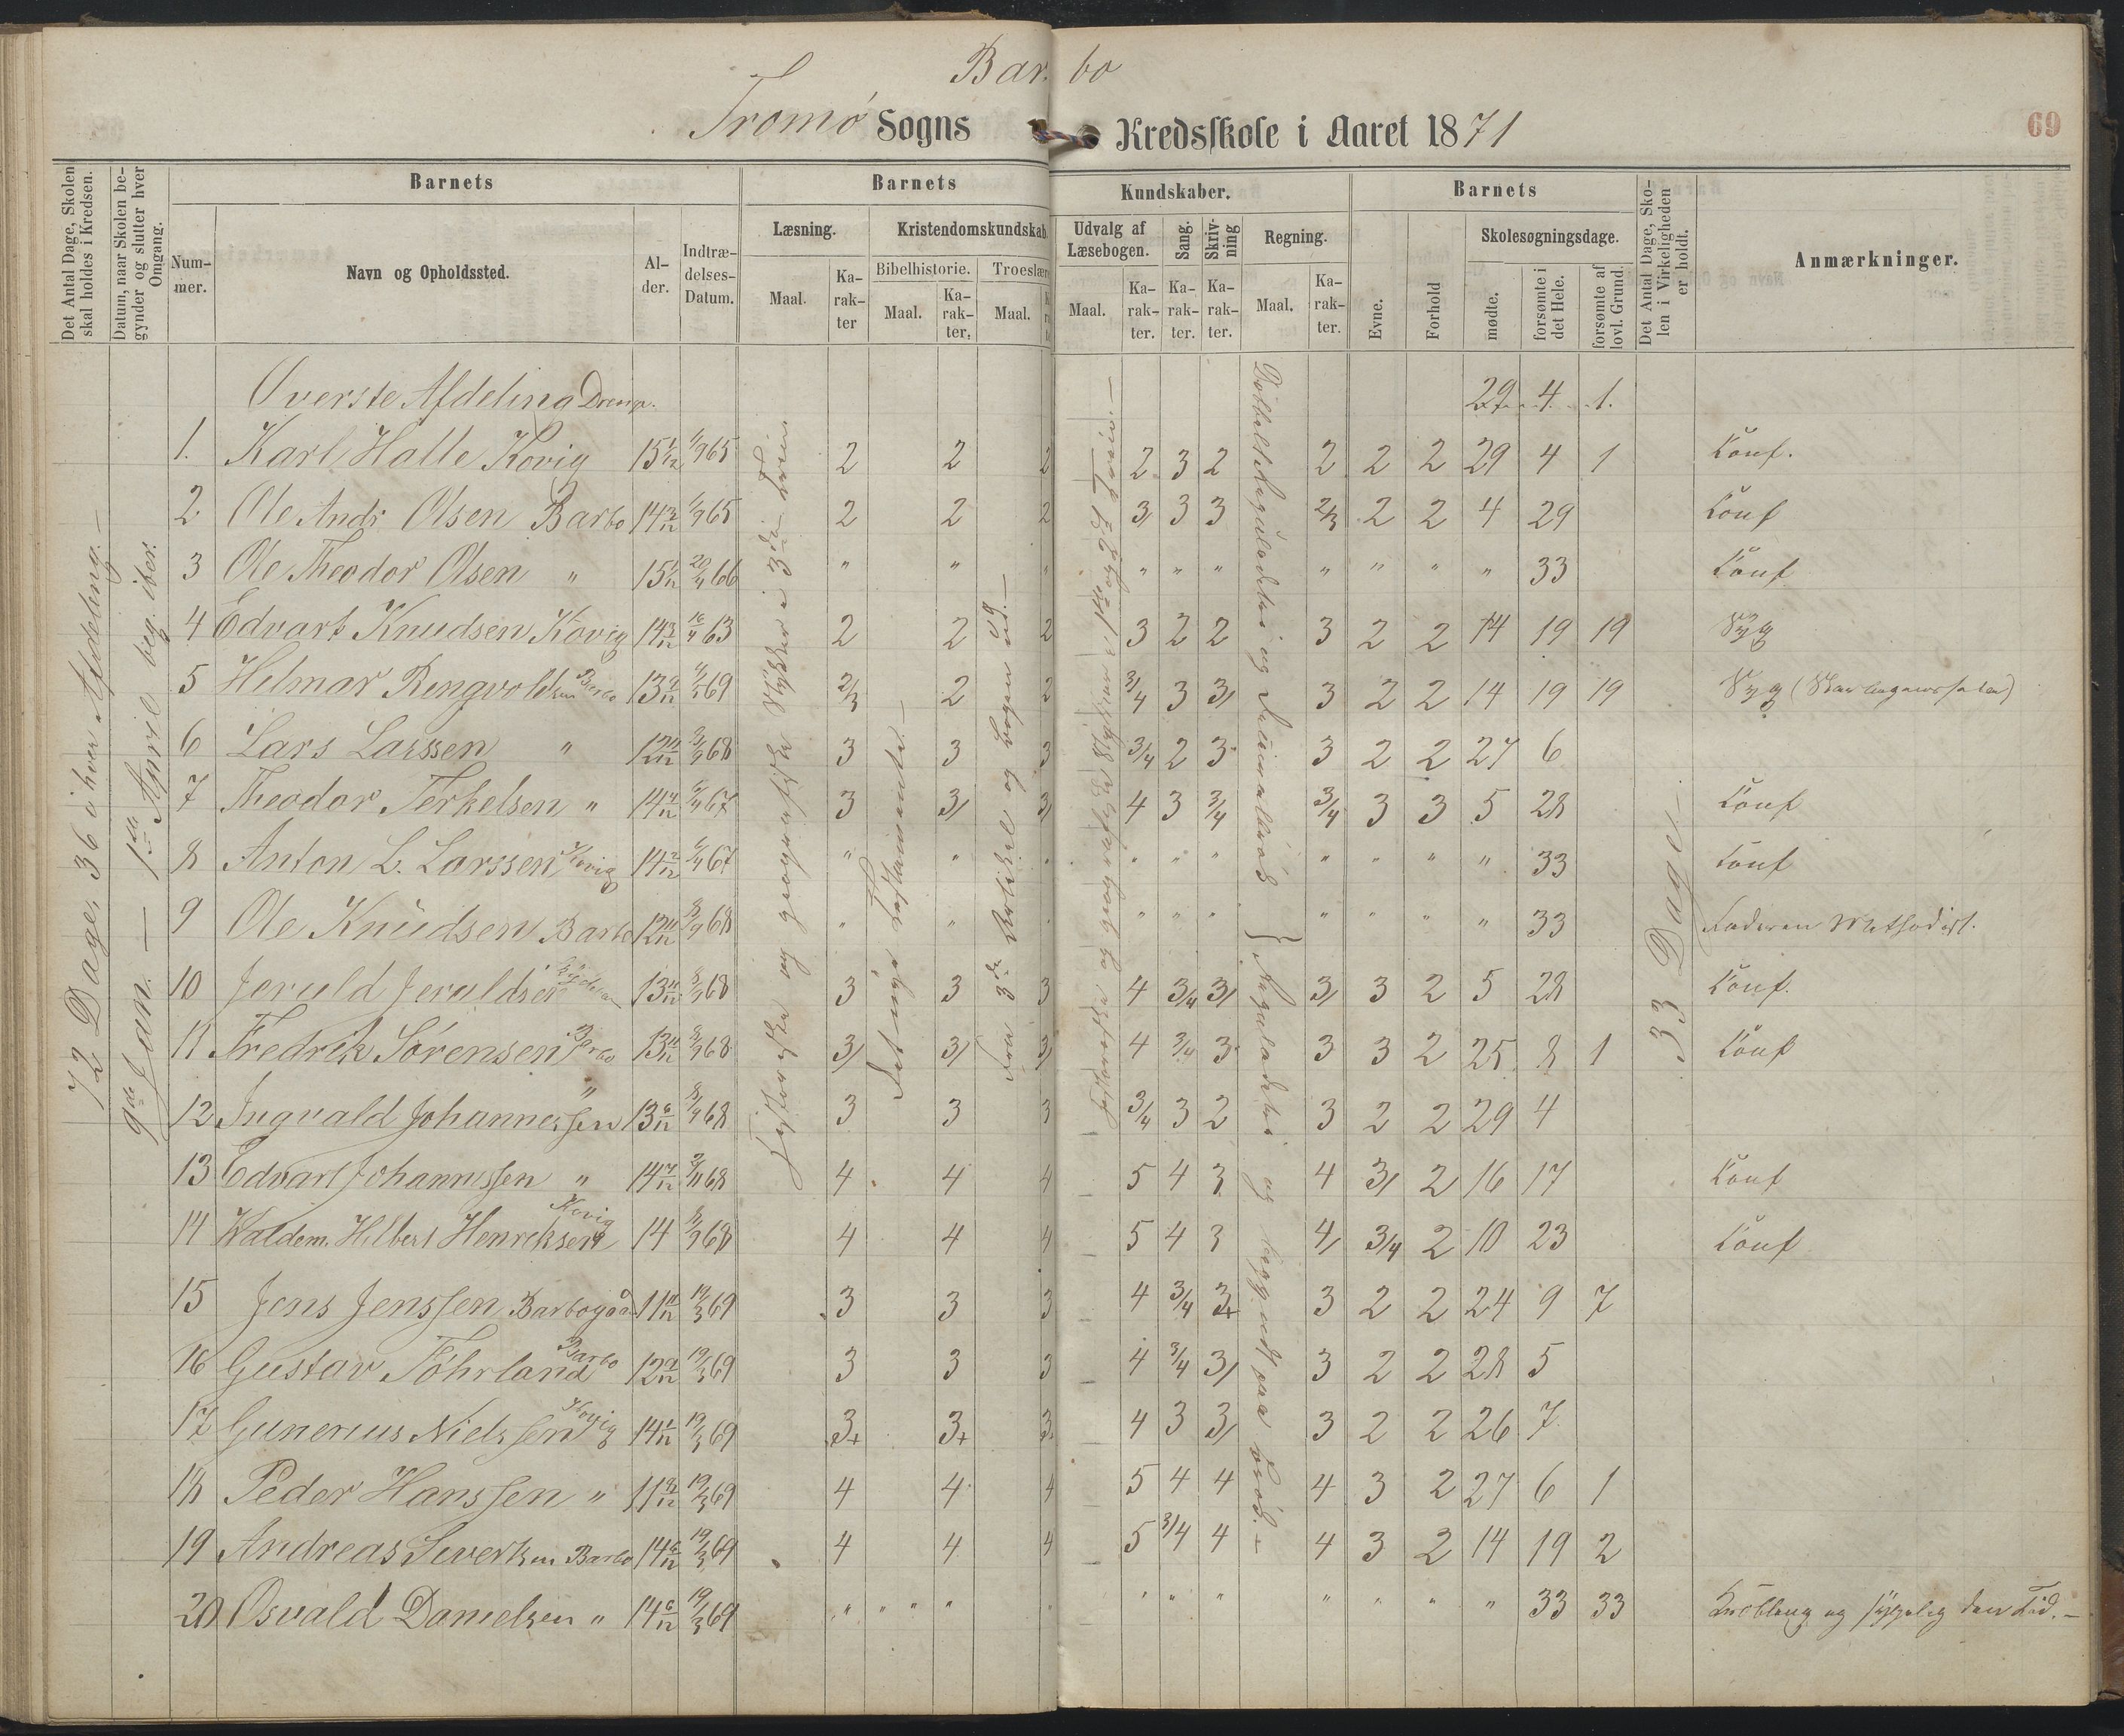 Barbo
Tromø Sogns Kredsskole i Aaret 1871
69
Det Antal Dage, Skolen skal holdes i Kredsen.
Datum, naar Skolen begynder og slutter hver Omgang.
Barnets
Barnets
Kundskaber.
Barnets
Det Antal Dage, Skolen i Virkeligheden er holdt.
Anmærkninger.
Nummer.
Navn og Opholdssted.
Alder.
Indtrædelses-Datum.
Læsning.
Kristendomskundskab.
Udvalg af Læsebogen.
Sang.
Skrivning
Regning.
Evne.
Forhold
Skolesøgningsdage.
Maal.
Karakter
Bibelhistorie.
Troeslære
Maal.
Karakter.
Maal.
Maal.
Karakter.
Karakter.
Karakter.
Maal.
Karakter.
mødte.
forsømte i det Hele.
forsømte af lovl. Grund.
72 Dage, 36 i hver Afdeling.—
9de Jan. — 1ste April
33 Dage
Øverste Afdeling Drenge. 29 4 1.
1. Karl Halle Kovig 15 1/12 1/9 65 2 2 2 2 3 2 2 2 2 29 4 1 Konf.
2 Ole Andr Olsen Barbo 14 3/12 1/9 65 2 2 2 3/ 3 3 2/3 2 2 4 29 Konf
3 Ole Theodor Olsen " 15 1/12 20/4 66 " " " " " " " " " " 33 Konf
4 Edvart Knudsen Kovig 14 3/12 16/4 63 2 2 2 3 2 2 3 2 2 14 19 19 Syg
5 Helmar Rengvoldsen Barbo 13 69 2/3 2 2 3/4 3 3/ 3 2 2 14 19 19 Syg
6 Lars Larssen " 12 11/12 68 3 3 3 3/4 2 3 3 2 2 27 6
7 Theodor Terkelsen " 14 67 3 3/ 3/ 4 3 3/4 3/4 3 3 5 28 Konf
8 Anton L. Larssen Kovig 14 2/12 67 " " " " " " " " " " 33 Konf
9 Ole Knudsen Barbo 12 11/12 68 " " " " " " " " " " 33 Faderen Methodist.
10 Jeruld Jeruldsen 13 11/12 68 3 3 3 4 3/4 3/ 3/ 3 2 5 28 Konf.
11 Fredrik Sørensen Barbo 13 11/12 68 3/ 3/ 3/ 4 3/4 3 3 3 2 25 8 1 Konf
12 Ingvald Johannessen " 13 6/12 68 3 3 3 3/4 3 2 3 2 2 29 4
13 Edvart Johannssen " 14 68 4 4 4 5 4 3 4 3/ 2 16 17 Konf
14 Waldem. Hilbert Henreksen Kovig 14 68 4 4 4 5 4 3 4/ 3/4 2 10 23 Konf
15 Jens Jenssen Barbogaa 11 19/3 69 3 3 3 4 3/4 3+ 3 2 2 24 9 7
16 Gustav Föhrland Barbo 12 19/3 69 3 3 3 4 3/4 3/ 3 2 2 28 5
17 Gunerius Nielssen Kovig 14 1/12 19/3 69 3+ 3+ 3 4 3 3/ 3 2 2 26 7
18 Peder Hanssen " 11 19/3 69 4 4 4 5 4 4 4 3 2 27 6 1
19 Andreas Severtsen Barbo 14 6/12 19/3 69 4 4 4 5 3/4 4 4 3 2 14 19 2
20 Osvald Danielsen " 14 6/12 19/3 69 " " " " " " " " " " 33 33 og sygelig